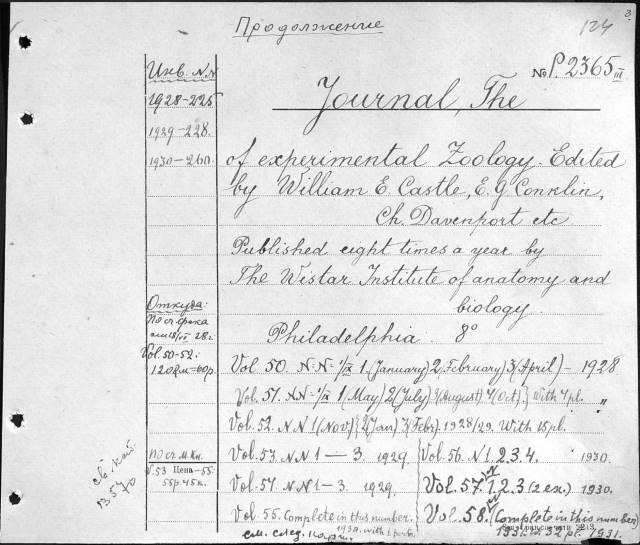 Продолжение
124
3
№ P. 2365 III
Инв. N.N
1928-225
1929-228.
1930-260.
Journal, The
of experimental Zoology. Edited
by William E. Castle, E. G. Conklin,
Ch. Davenport etc
Published eight times a year by
The Wistar Institute of anatomy and
biology.
Philadelphia. 8°
Откуда:
По сч.
Vol. 50-52:
Vol. 50. N.N. 1 (January) 2 (February) 3 (April) - 1928
Vol. 51. N.N. 1 (May) 2 (July) 3 (August) 4 (Oct.) With 4 pl. "
Vol. 52. N N 1 (Nov.) 2 (Jan) 3 (Febr.) 1928/29. With 15 pl.
По сч. М. Кн.
V. 53 Цена-55
55р. 45к.
Vol. 53. N N 1 — 3. 1929.
Vol. 54. N N 1 — 3. 1929.
Vol. 55. Complete in this number.
1930. with 1 portr.
Vol. 56. N 1. 2. 3. 4. " 1930.
Vol. 57. N 1. 2. 3 (2 ex.) 1930.
Vol. 58. (Complete in this number)
1931. 1931.
См. след. карт.